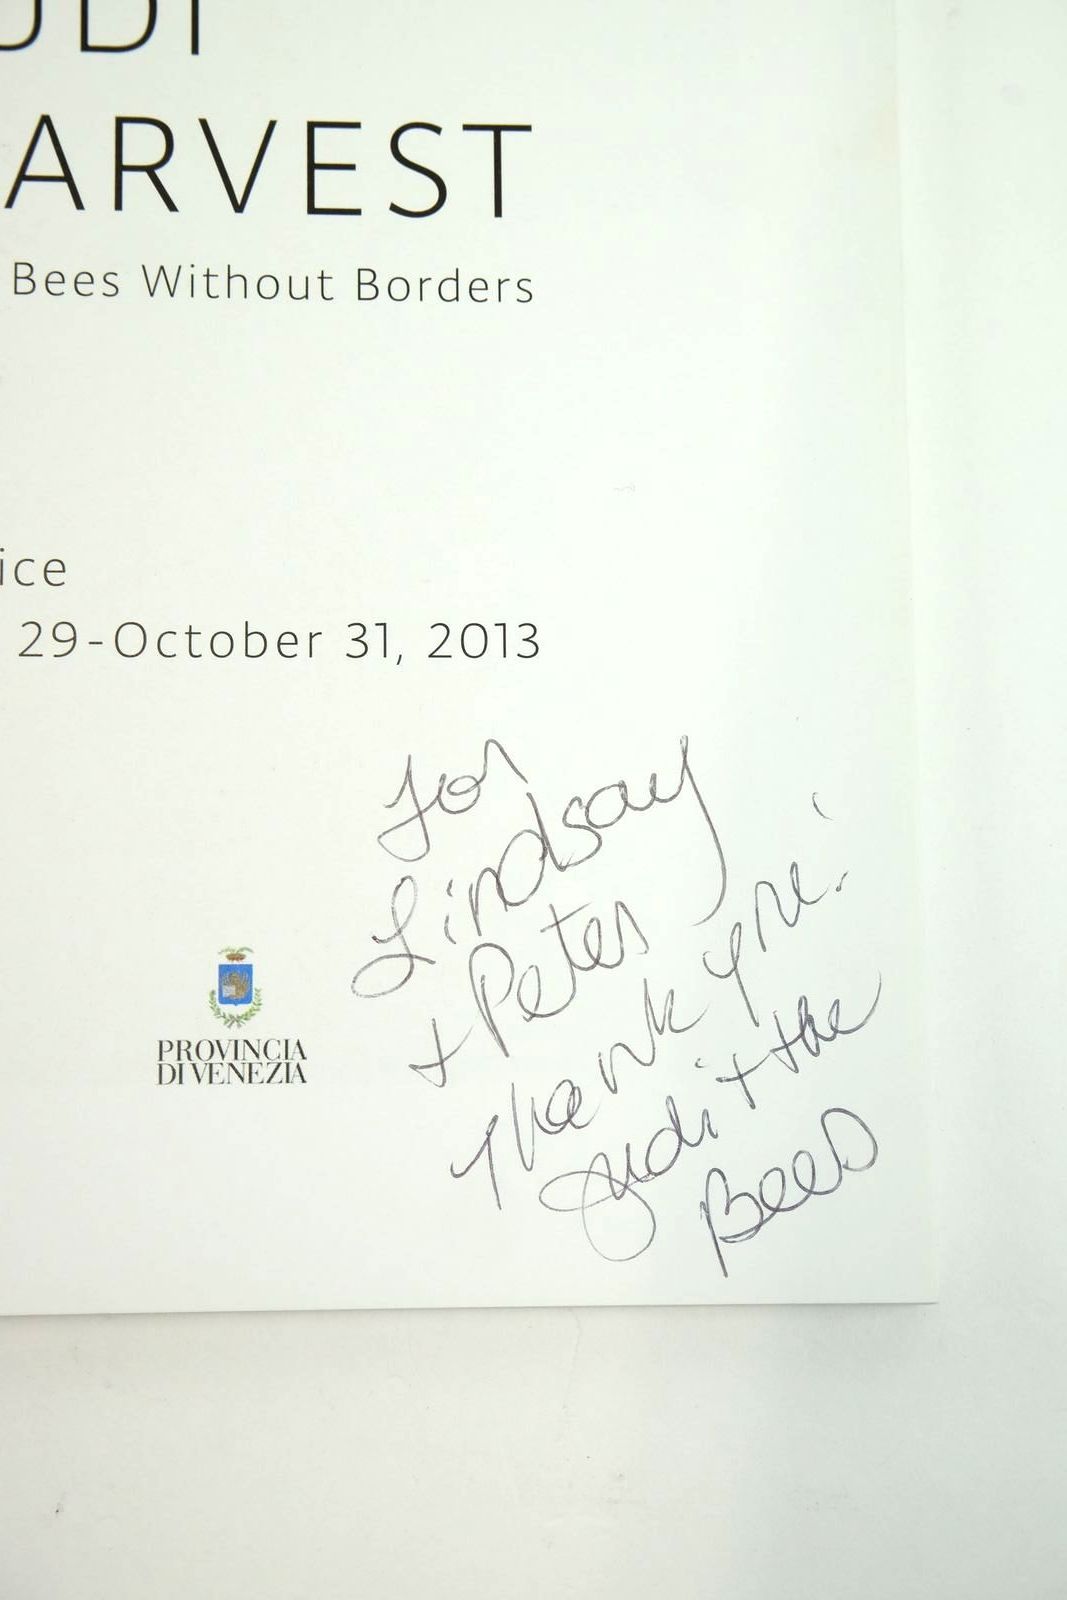 UDI
ARVEST
Bees Without Borders
ice
29-October 31, 2013
For
Lindsay
+ Peter
Thank you!
Judi + the
Bees
PROVINCIA
DI VENEZIA